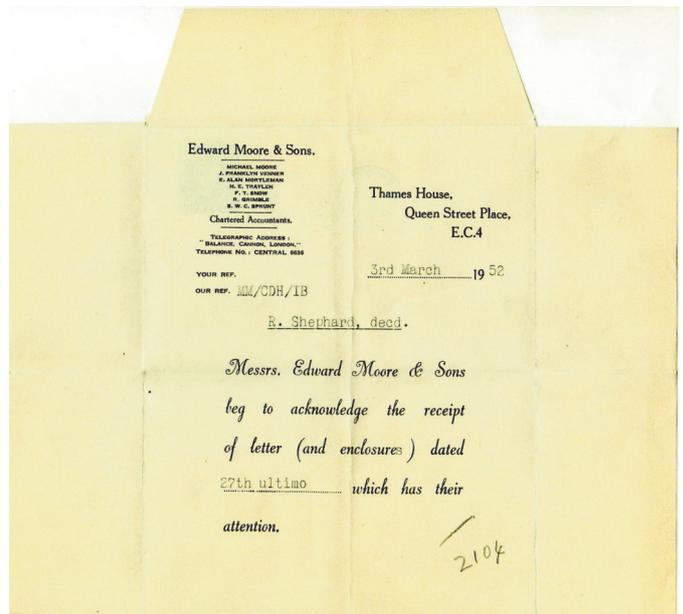 Edward Moore & Sons.
MICHAEL MOORE
J. FRANKLYN VENNER
E. ALAN MORTLEMAN
H. E. TRAYLEN
F. T. SNOW
R. GRIMBLE
S. W. C. SPRUNT
Chartered Accountants.
TELEGRAPHIC ADDRESS:
"BALANCE, CANNON, LONDON,"
TELEPHONE NO.: CENTRAL 6636
YOUR REF.
OUR REF. MM/CDH/IB
Thames House,
Queen Street Place,
E.C.4
3rd March 1952
R. Shephard, decd.
Messrs. Edward Moore & Sons
beg to acknowledge the receipt
of letter (and enclosures) dated
27th ultimo which has their
attention.
2104